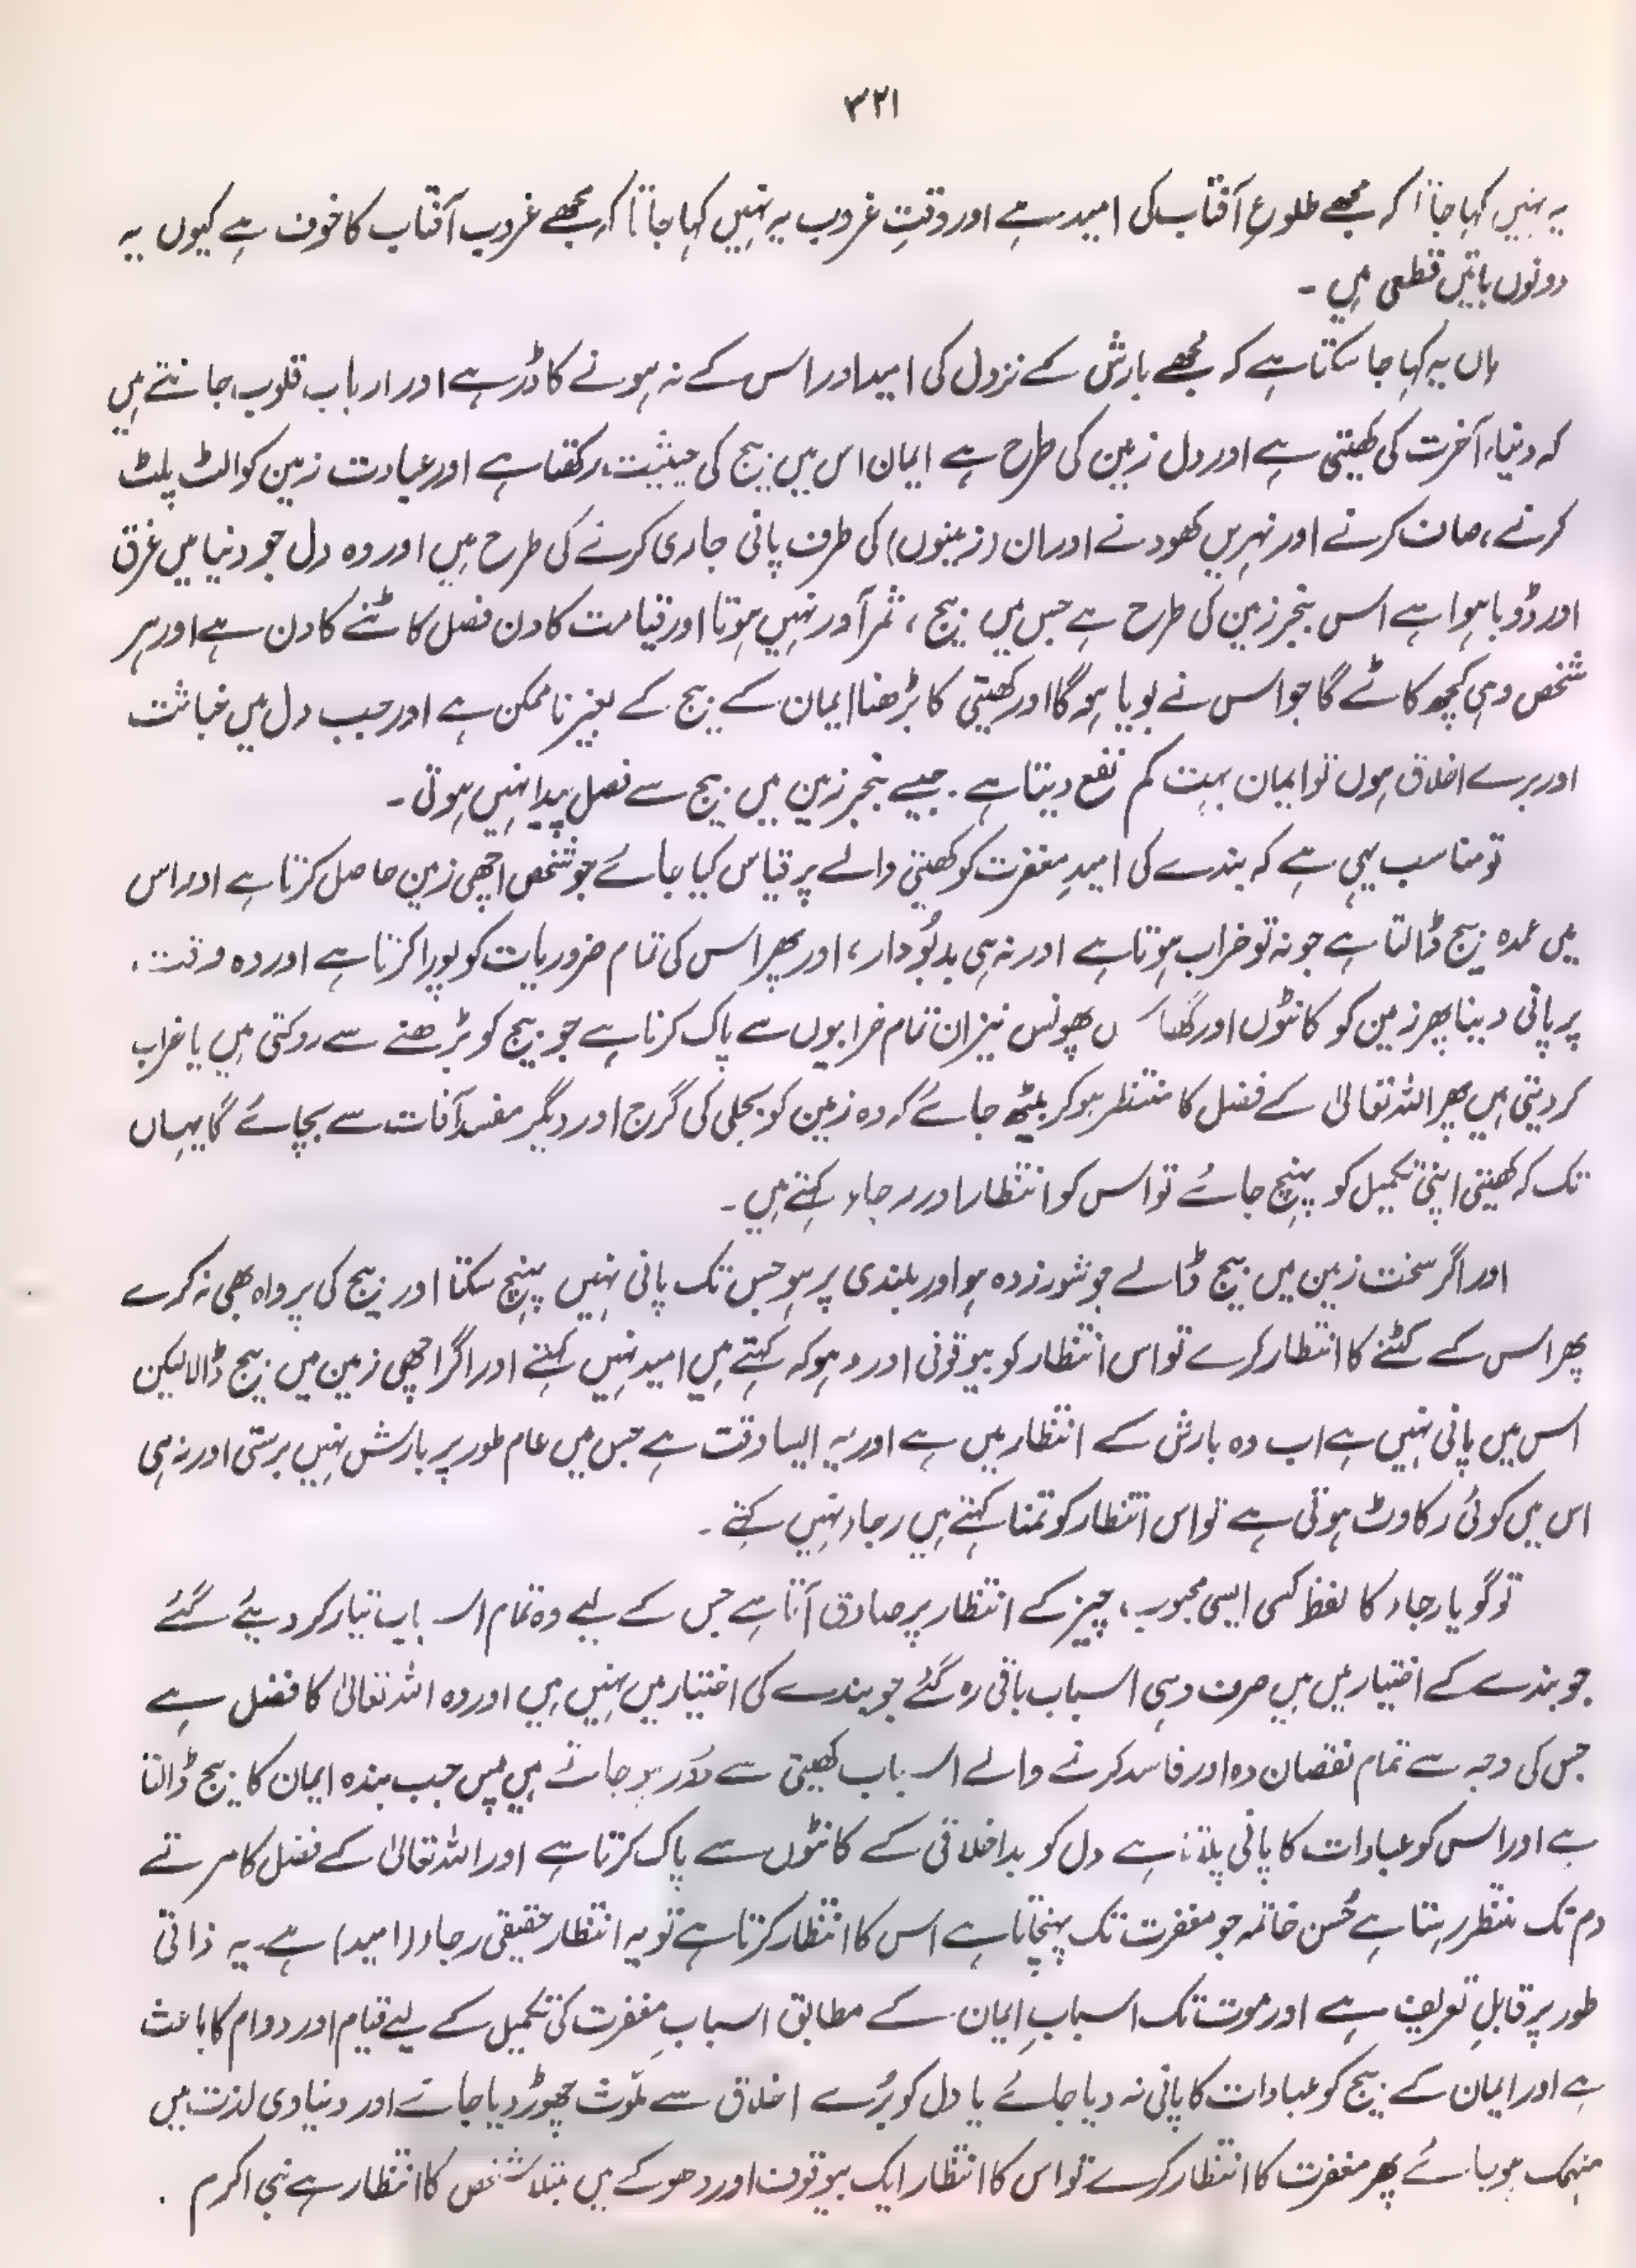 ۳۲۱
یہ نہیں کہا جاتا کہ مجھے طلوعِ آفتاب کی امید ہے اور وقتِ غروب یہ نہیں کہا جاتا کہ مجھے غروب آفتاب کا خوف ہے کیوں یہ
دونوں باتیں قطعی ہیں ۔
ہاں یہ کہا جا سکتا ہے کہ مجھے بارش کے نزول کی امید اور اس کے نہ ہونے کا ڈر ہے اور ارباب قلوب جانتے ہیں
کہ دنیا، آخرت کی کھیتی ہے اور دل زمین کی طرح ہے ایمان اس میں بیج کی حیثیت رکھتا ہے اور عبادت زمین کو الٹ پلٹ
کرنے، صاف کرنے اور نہریں کھودنے اور ان (زمینوں) کی طرف پانی جاری کرنے کی طرح ہیں اور وہ دل جو دنیا میں غرق
اور ڈوبا ہوا ہے اس بنجر زمین کی طرح ہے جس میں بیج ، ثمر آور نہیں ہوتا اور قیامت کا دن فصل کاٹنے کا دن ہے اور ہر
شخص وہی کچھ کاٹے گا جو اس نے بویا ہو گا اور کھیتی کا بڑھنا ایمان کے بیج کے بغیر ناممکن ہے اور جب دل میں خباثت
اور برے اخلاق ہوں تو ایمان بہت کم نفع دیتا ہے ۔ جیسے بنجر زمین میں بیج سے فصل پیدا نہیں ہوتی ۔
تو مناسب یہی ہے کہ بندے کی امیدِ مغفرت کو کھیتی والے پر قیاس کیا جائے جو شخص اچھی زمین حاصل کرتا ہے اور اس
میں عمدہ بیج ڈالتا ہے جو نہ تو خراب ہوتا ہے اور نہ ہی بدبُو دار، اور پھر اس کی تمام ضروریات کو پورا کرتا ہے اور وہ وقت
پر پانی دینا پھر زمین کو کانٹوں اور گھاس پھونس نیز ان تمام خرابیوں سے پاک کرنا ہے جو بیج کو بڑھنے سے روکتی ہیں یا خراب
کر دیتی ہیں پھر اللہ تعالیٰ کے فضل کا منتظر ہو کر بیٹھ جائے کہ وہ زمین کو بجلی کی گرج اور دیگر مفسد آفات سے بچائے گا یہاں
تک کہ کھیتی اپنی تکمیل کو پہنچ جائے تو اس کو انتظار اور رجاء کہتے ہیں ۔
اور اگر سخت زمین میں بیج ڈالے جو شور زدہ ہو اور بلندی پر ہو جس تک پانی نہیں پہنچ سکتا اور بیج کی پرواہ بھی نہ کرے
پھر اس کے کٹنے کا انتظار کرے تو اس انتظار کو بیوقوفی اور دہوکہ کہتے ہیں امید نہیں کہتے اور اگر اچھی زمین میں بیج ڈالا لیکن
اس میں پانی نہیں ہے اب وہ بارش کے انتظار میں ہے اور یہ ایسا وقت ہے جس میں عام طور پر بارش نہیں برستی اور نہ ہی
اس میں کوئی رکاوٹ ہوتی ہے تو اس انتظار کو تمنا کہتے ہیں رجاء نہیں کہتے ۔
تو گویا رجاء کا لفظ کسی ایسی محبوب، چیز کے انتظار پر صادق آتا ہے جس کے لیے وہ تمام اسباب تیار کر دیئے گئے
جو بندے کے اختیار میں ہیں صرف وہی اسباب باقی رہ گئے جو بندے کی اختیار میں نہیں ہیں اور وہ اللہ تعالیٰ کا فضل ہے
جس کی وجہ سے تمام نقصان دہ اور فاسد کرنے والے اسباب کھیتی سے دُور ہو جاتے ہیں پس جب بندہ ایمان کا بیج ڈالتا
ہے اور اس کو عبادات کا پانی پلاتا ہے دل کو بداخلاقی کے کانٹوں سے پاک کرتا ہے اور اللہ تعالیٰ کے فضل کا مرتے
دم تک منتظر رہتا ہے حُسن خاتمہ جو مغفرت تک پہنچاتا ہے اس کا انتظار کرتا ہے تو یہ انتظار حقیقی رجاء (امید) ہے۔ یہ ذاتی
طور پر قابلِ تعریف ہے اور موت تک اسبابِ ایمان کے مطابق اسبابِ مغفرت کی تکمیل کے لیے قیام اور دوام کا باعث
ہے اور ایمان کے بیج کو عبادات کا پانی نہ دیا جائے یا دل کو بُرے اخلاق سے ملوث چھوڑ دیا جائے اور دنیاوی لذت میں
منہمک ہو جائے پھر مغفرت کا انتظار کرے تو اس کا انتظار ایک بیوقوف اور دھوکے میں مبتلا شخص کا انتظار ہے نبی اکرم